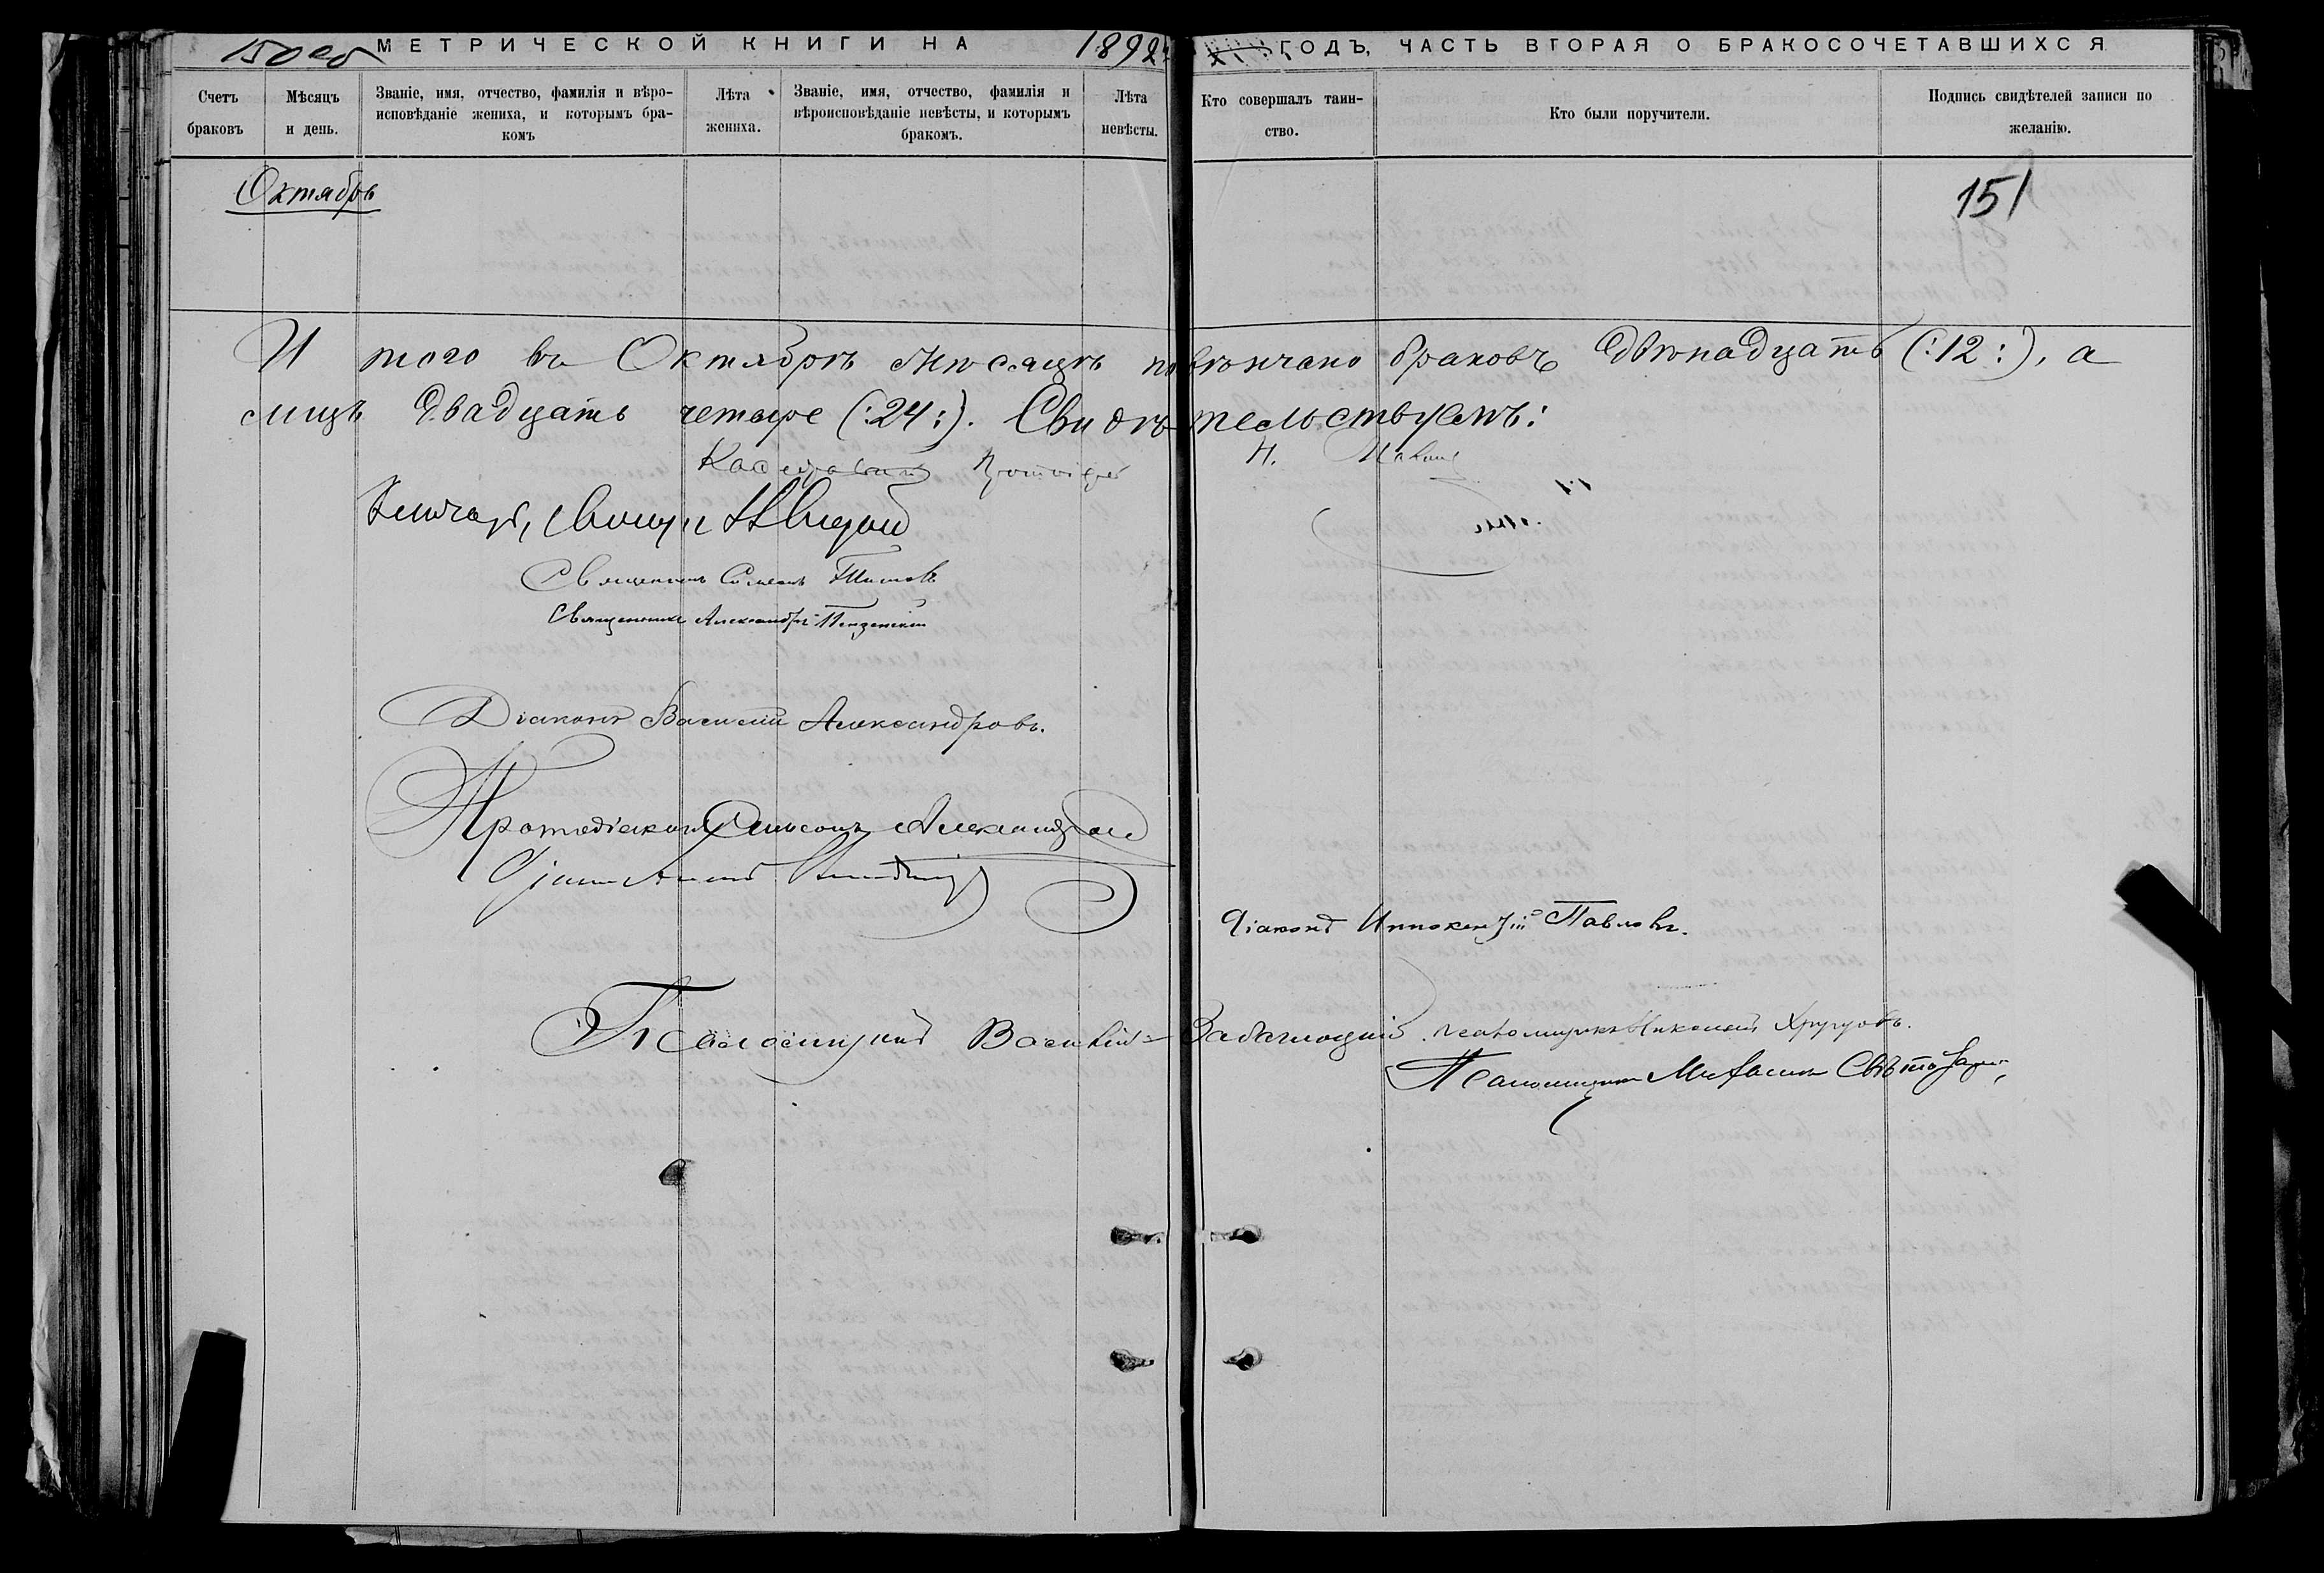 150 об
МЕТРИЧЕСКОЙ КНИГИ НА 1892
ГОДЪ, ЧАСТЬ ВТОРАЯ О БРАКОСОЧЕТАВШИХСЯ
Счетъ браковъ
Мѣсяцъ и день.
Званіе, имя, отчество, фамилія и вѣро-
исповѣданіе жениха, и которымъ бра-
комъ
Лѣта
жениха.
Званіе, имя, отчество, фамилія и
вѣроисповѣданіе невѣсты, и которымъ
бракомъ.
Лѣта
невѣсты.
Кто совершалъ таин-
ство.
Кто были поручители.
Подпись свидѣтелей записи по
желанію.
Октябрь
151
Итого въ Октябрѣ мѣсяцѣ повѣнчано браковъ двѣнадцать (:12:), а
лицъ двадцать четыре (:24:). Свидѣтельствуемъ:
Ключарь,
Священникъ Симеонъ Титовъ
Священникъ Александръ
Діаконъ Василій Александровъ.
Протодіаконъ Александровъ
Діаконъ Иннокентій Павловъ.
Псаломщикъ Василій Заблоцкій
псаломщикъ Николай
Псаломщикъ